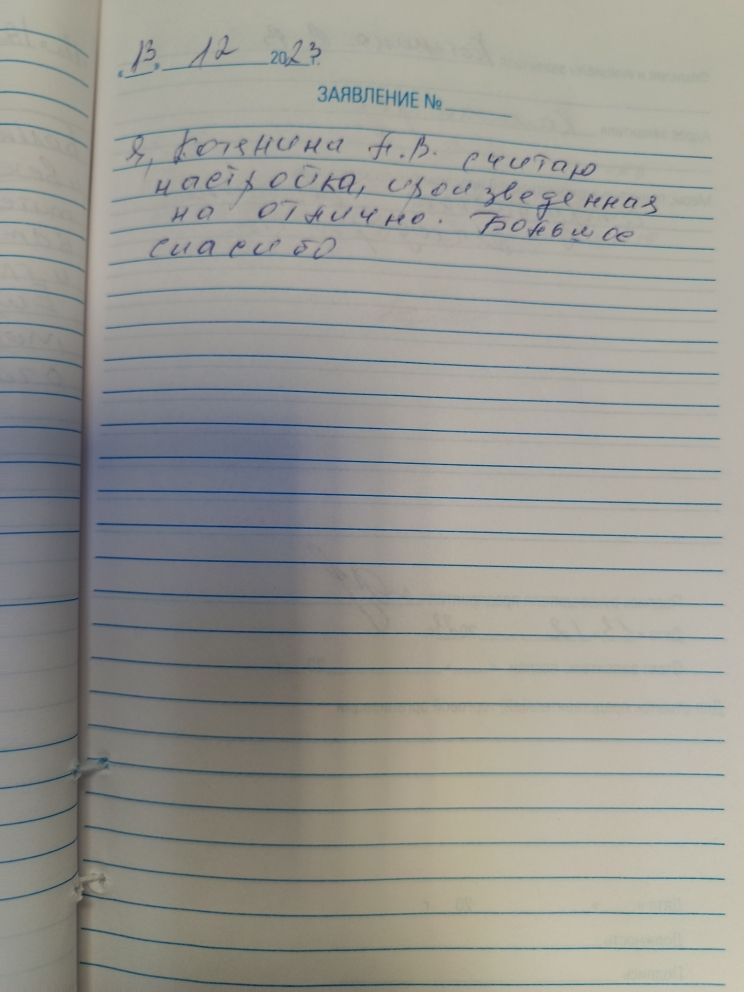 «13» 12 2023г.
ЗАЯВЛЕНИЕ №
Я, Котянина А.В. считаю
настройка, произведенная
на отлично. Большое
спасибо